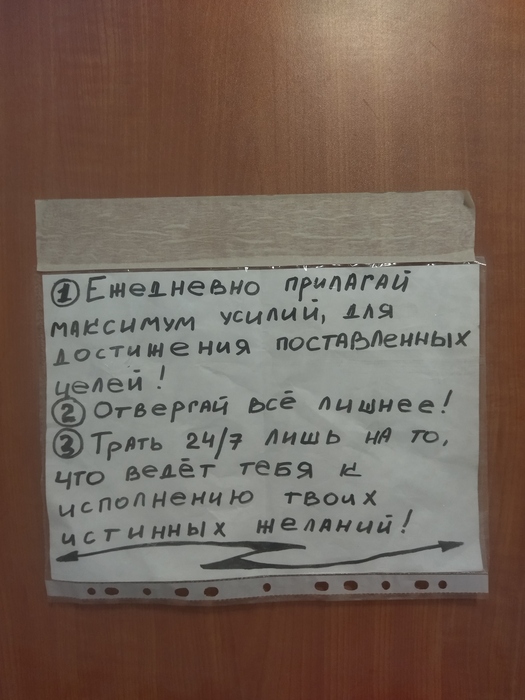 1 Ежедневно прилагай
максимум усилий, для
достижения поставленных
целей!
2 Отвергай всё лишнее!
3 Трать 24/7 лишь на то,
что ведёт тебя к
исполнению твоих
истинных желаний!